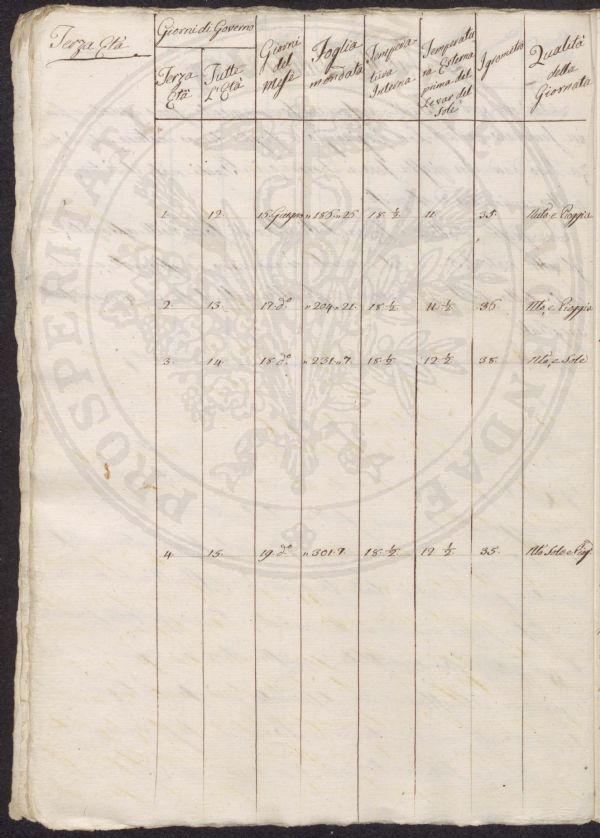 Terza Età
Giorni di Governo
Terza Età
Tutte L'Età
Giorni del Mese
Foglia mondata
Tempera- tura Interna
Temperatu ra Esterna prima del Levar del Sole
Igrometro
Qualità della Giornata
1. 12. 15. Giugno n 185 n 25 18 ½ 11. 35. e Pioggia
2. 13. 17. do n 204 n 21. 18 ½ 11 ½ 36 e Pioggia
3. 14. 18. do n 231 n 7 18 ½ 12 ½ 38. e Sole
4. 15. 19. do n 301. 7 18 ½ 12 ½ 35. Sole e Piog
PROSPERITATI